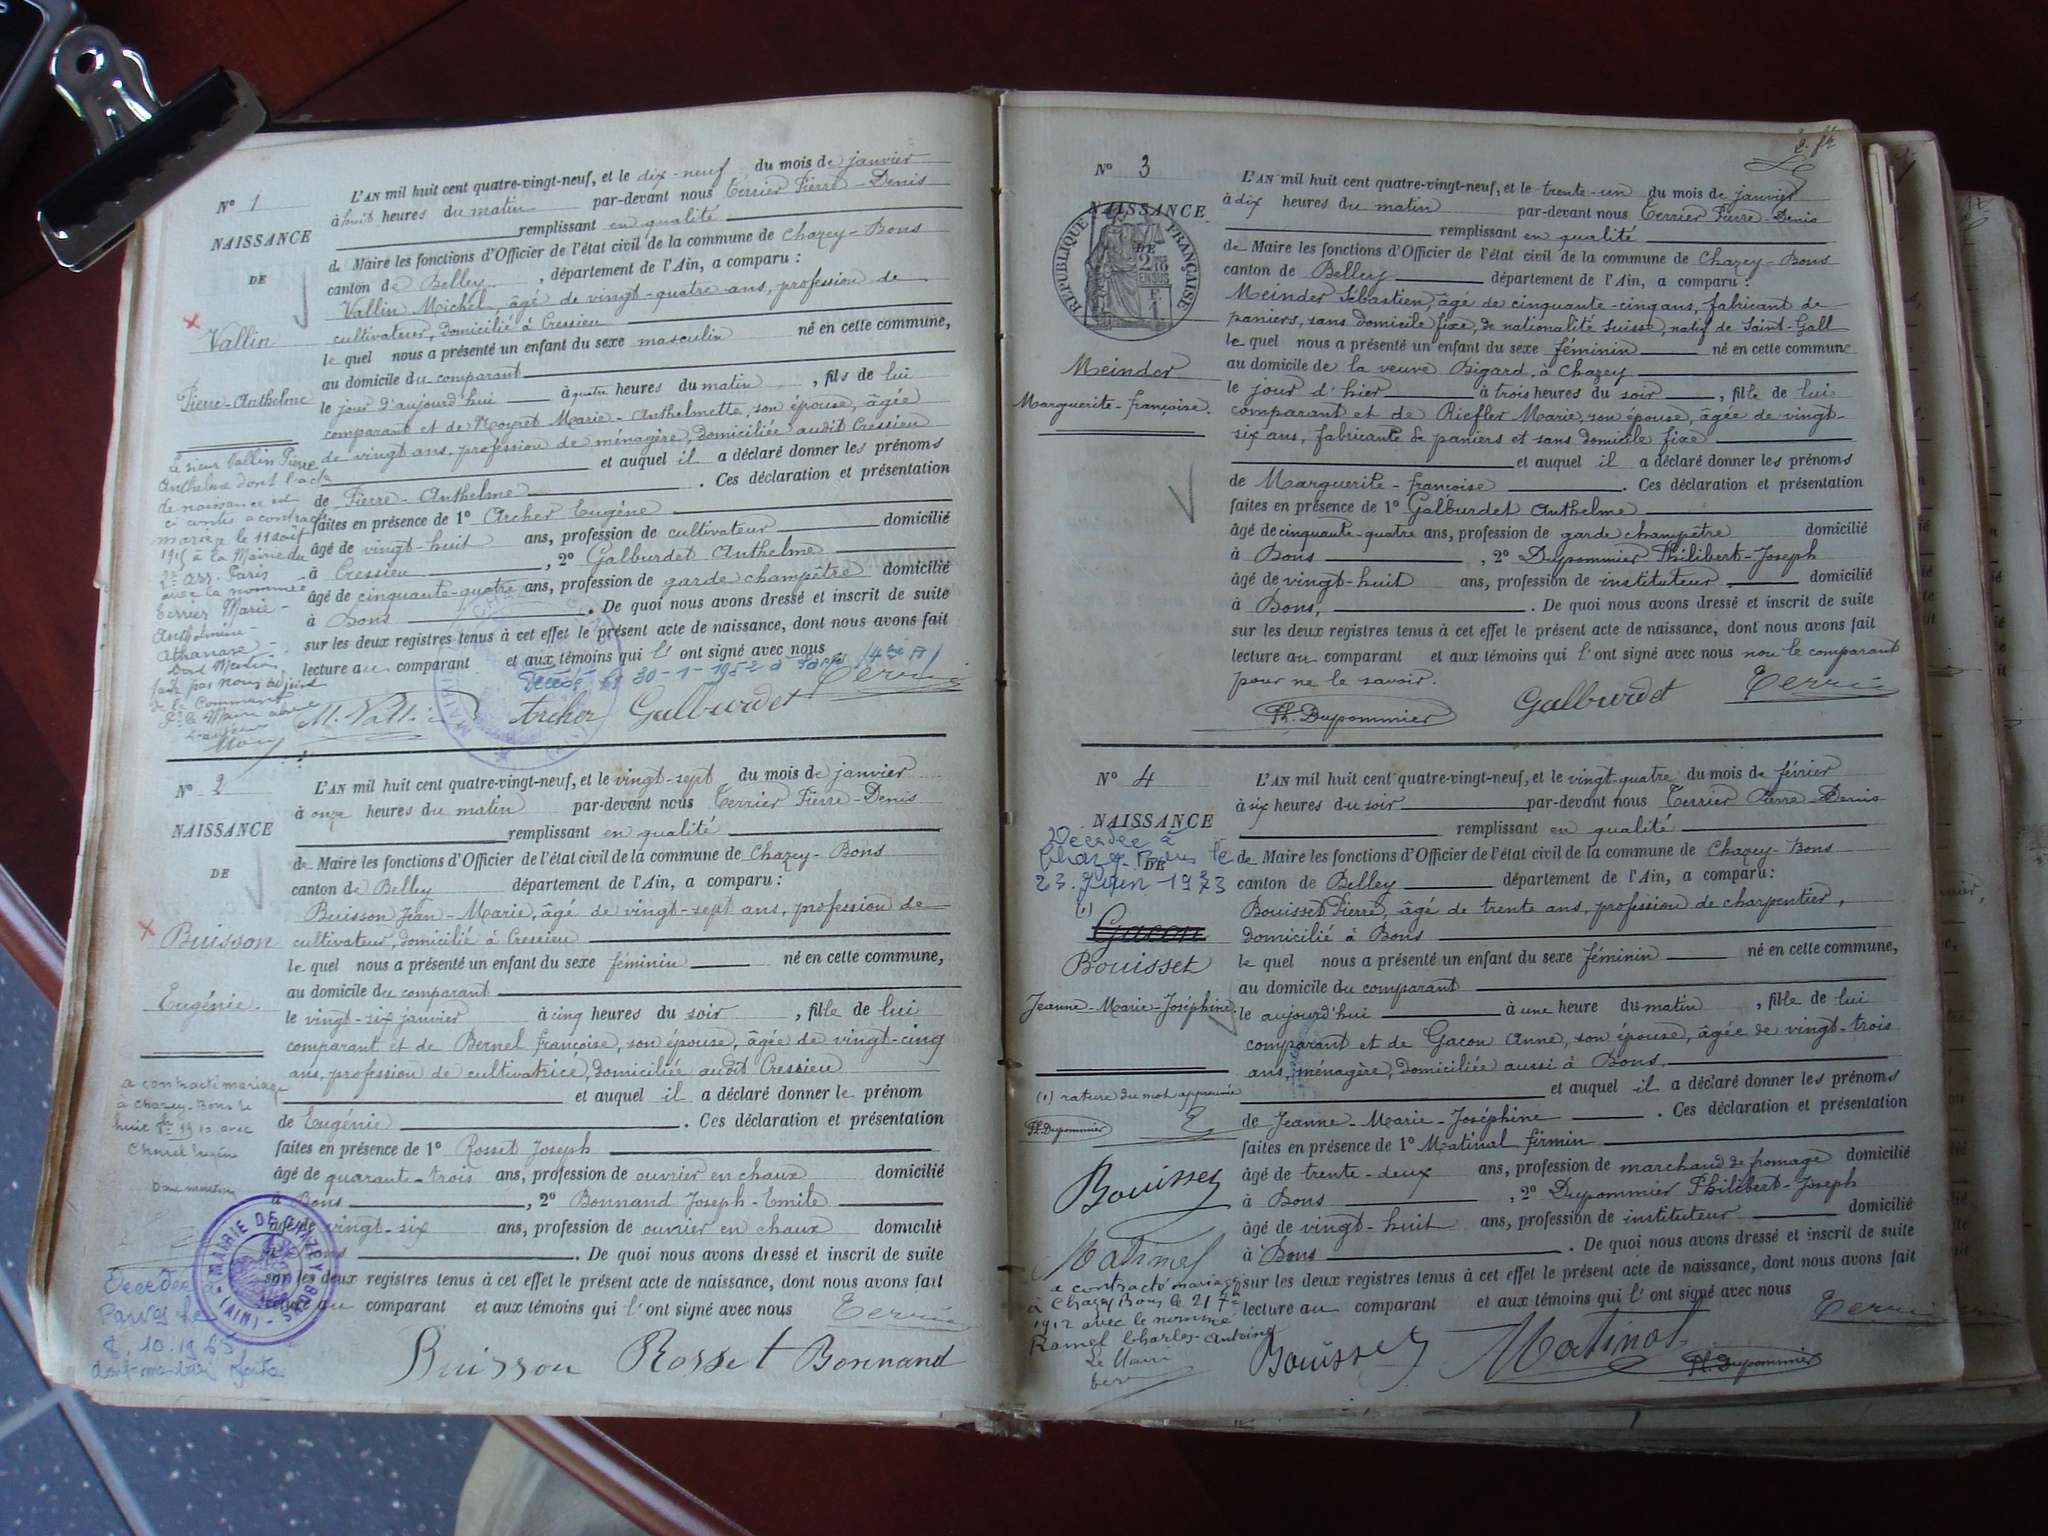 N° 1
NAISSANCE
DE
Vallin
Pierre-Anthelme
L'AN mil huit cent quatre-vingt-neuf, et le dix-neuf du mois de janvier
à huit heures du matin par-devant nous Terrier Pierre-Denis
remplissant en qualité
de Maire les fonctions d'Officier de l'état civil de la commune de Chazey-Bons
canton de Belley, département de l'Ain, a comparu :
Vallin Michel, âgé de vingt-quatre ans, profession de
cultivateur, domicilié à Cressieu
le quel nous a présenté un enfant du sexe masculin né en cette commune,
au domicile du comparant
le jour d'aujourd'hui à quatre heures du matin, fils de lui
comparant et de Moyret Marie-Anthelmette, son épouse, âgée
de vingt ans, profession de ménagère, domiciliée audit Cressieu
et auquel il a déclaré donner les prénoms
de Pierre-Anthelme. Ces déclaration et présentation
faites en présence de 1° Archer Eugène
âgé de vingt-huit ans, profession de cultivateur domicilié
à Cressieu, 2° Galburdet Anthelme
âgé de cinquante-quatre ans, profession de garde champêtre domicilié
à Bons. De quoi nous avons dressé et inscrit de suite
sur les deux registres tenus à cet effet le présent acte de naissance, dont nous avons fait
lecture au comparant et aux témoins qui l'ont signé avec nous
Décédé le 30-1-1952 à Paris (4me Ar)
M. Vallin Archer Galburdet Terrier
Le sieur Vallin Pierre
Anthelme dont l'acte
de naissance est
ci contre a contracté
mariage le 11 août
1915 à la Mairie du
2e arr. Paris
avec la nommée
Terrier Marie-
Anthelmine-
Athanase-
Dont Mention
faite par nous adjoint
de la Commune
Pr le Maire absent
N° 2
NAISSANCE
DE
Buisson
Eugénie
L'AN mil huit cent quatre-vingt-neuf, et le vingt-sept du mois de janvier
à onze heures du matin par-devant nous Terrier Pierre-Denis
remplissant en qualité
de Maire les fonctions d'Officier de l'état civil de la commune de Chazey-Bons
canton de Belley département de l'Ain, a comparu :
Buisson Jean-Marie, âgé de vingt-sept ans, profession de
cultivateur, domicilié à Cressieu
le quel nous a présenté un enfant du sexe féminin né en cette commune,
au domicile du comparant
le vingt-six janvier à cinq heures du soir, fille de lui
comparant et de Bernel françoise, son épouse, âgée de vingt-cinq
ans, profession de cultivatrice, domiciliée audit Cressieu
et auquel il a déclaré donner le prénom
de Eugénie. Ces déclaration et présentation
faites en présence de 1° Rosset Joseph
âgé de quarante-trois ans, profession de ouvrier en chaux domicilié
à Bons, 2° Bonnand Joseph-Emile
âgé de vingt-six ans, profession de ouvrier en chaux domicilié
à Bons. De quoi nous avons dressé et inscrit de suite
sur les deux registres tenus à cet effet le présent acte de naissance, dont nous avons fait
lecture au comparant et aux témoins qui l'ont signé avec nous Terrier
Buisson Rosset Bonnand
a contracté mariage
à Chazey-Bons le
huit 1910 avec
Eugène
Dont mention
MAIRIE DE CHAZEY-BONS (AIN)
Décédée
Parves le
8.10.1965
dont mention faite
2. fé
N° 3
NAISSANCE
DE
RÉPUBLIQUE FRANÇAISE
2/10 EN SUS
Meinder
Marguerite-françoise.
L'AN mil huit cent quatre-vingt-neuf, et le trente-un du mois de janvier
à dix heures du matin par-devant nous Terrier Pierre-Denis
remplissant en qualité
de Maire les fonctions d'Officier de l'état civil de la commune de Chazey-Bons
canton de Belley département de l'Ain, a comparu :
Meinder Sébastien, âgé de cinquante-cinq ans, fabricant de
paniers, sans domicile fixe, de nationalité suisse, natif de Saint-Gall
le quel nous a présenté un enfant du sexe féminin né en cette commune
au domicile de la veuve Bigard, à Chazey
le jour d'hier à trois heures du soir, fille de lui
comparant et de Riefler Marie, son épouse, âgée de vingt-
six ans, fabricante de paniers et sans domicile fixe
et auquel il a déclaré donner les prénoms
de Marguerite-françoise. Ces déclaration et présentation
faites en présence de 1° Galburdet Anthelme
âgé de cinquante-quatre ans, profession de garde champêtre domicilié
à Bons, 2° Dupommier Philibert-Joseph
âgé de vingt-huit ans, profession de instituteur domicilié
à Bons,. De quoi nous avons dressé et inscrit de suite
sur les deux registres tenus à cet effet le présent acte de naissance, dont nous avons fait
lecture au comparant et aux témoins qui l'ont signé avec nous non le comparant
pour ne le savoir.
Ph. Dupommier Galburdet Terrier
N° 4
NAISSANCE
DE
Décédée à
Chazey-Bons le
23 Juin 1973
(1)
Gacon
Bouisset
Jeanne-Marie-Joséphine
L'AN mil huit cent quatre-vingt-neuf, et le vingt-quatre du mois de février
à six heures du soir par-devant nous Terrier Pierre-Denis
remplissant en qualité
de Maire les fonctions d'Officier de l'état civil de la commune de Chazey-Bons
canton de Belley département de l'Ain, a comparu :
Bouisset Pierre, âgé de trente ans, profession de charpentier,
domicilié à Bons
le quel nous a présenté un enfant du sexe féminin né en cette commune,
au domicile du comparant
le aujourd'hui à une heure du matin, fille de lui
comparant et de Gacon Anne, son épouse, âgée de vingt-trois
ans, ménagère, domiciliée aussi à Bons.
et auquel il a déclaré donner les prénoms
de Jeanne-Marie-Joséphine. Ces déclaration et présentation
faites en présence de 1° Matinal firmin
âgé de trente-deux ans, profession de marchand de fromage domicilié
à Bons, 2° Dupommier Philibert-Joseph
âgé de vingt-huit ans, profession de instituteur domicilié
à Bons. De quoi nous avons dressé et inscrit de suite
sur les deux registres tenus à cet effet le présent acte de naissance, dont nous avons fait
lecture au comparant et aux témoins qui l'ont signé avec nous
Terrier
Bouisset Matinal Ph. Dupommier
(1) rature du mot approuvée
Ph. Dupommier T
Bouisset
Matinal
a contracté mariage
à Chazey Bons le 21 7bre
1912 avec le nommé
Ramel Charles-Antoine
Le Maire